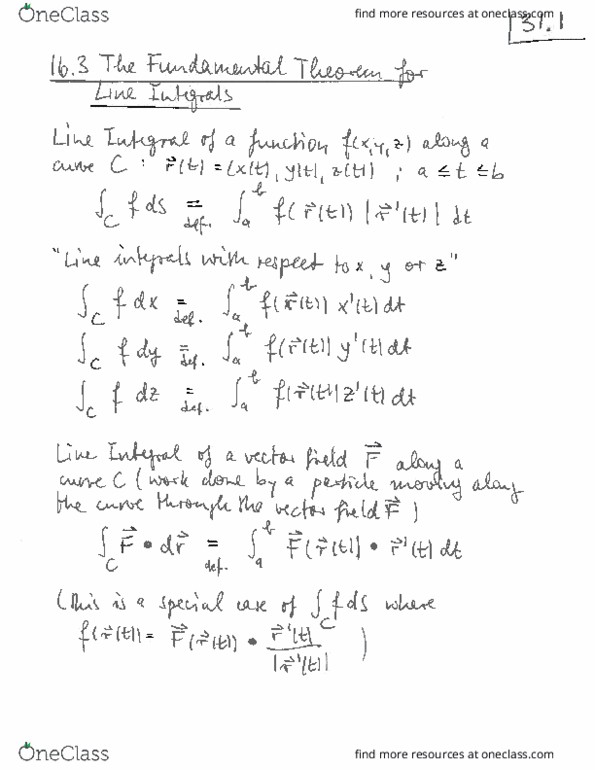 OneClass
find more resources at oneclass.com
31.1
16.3 The Fundamental Theorem for
Line Integrals
Line Integral of a function f(x,y,z) along a
curve C : r⃗(t) = (x(t), y(t), z(t)) ; a ≤ t ≤ b
∫_C f ds =_def. ∫_a^b f(r⃗(t)) |r⃗'(t)| dt
"Line integrals with respect to x, y or z"
∫_C f dx =_def. ∫_a^b f(r⃗(t)) x'(t) dt
∫_C f dy =_def. ∫_a^b f(r⃗(t)) y'(t) dt
∫_C f dz =_def. ∫_a^b f(r⃗(t)) z'(t) dt
Line Integral of a vector field F⃗ along a
curve C (work done by a particle moving along
the curve through the vector field F⃗)
∫_C F⃗ • dr⃗ =_def. ∫_a^b F⃗(r⃗(t)) • r⃗'(t) dt
(This is a special case of ∫_C f ds where
f(r⃗(t)) = F⃗(r⃗(t)) • r⃗'(t)/|r⃗'(t)| )
OneClass
find more resources at oneclass.com